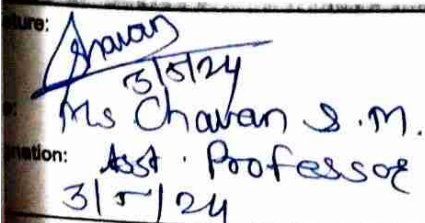 ture: Chavan
3/5/24
: Ms Chavan S.M.
nation: Asst. Professor
3/5/24